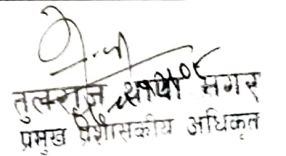 तुलसीराज थापा मगर
प्रमुख प्रशासकीय अधिकृत